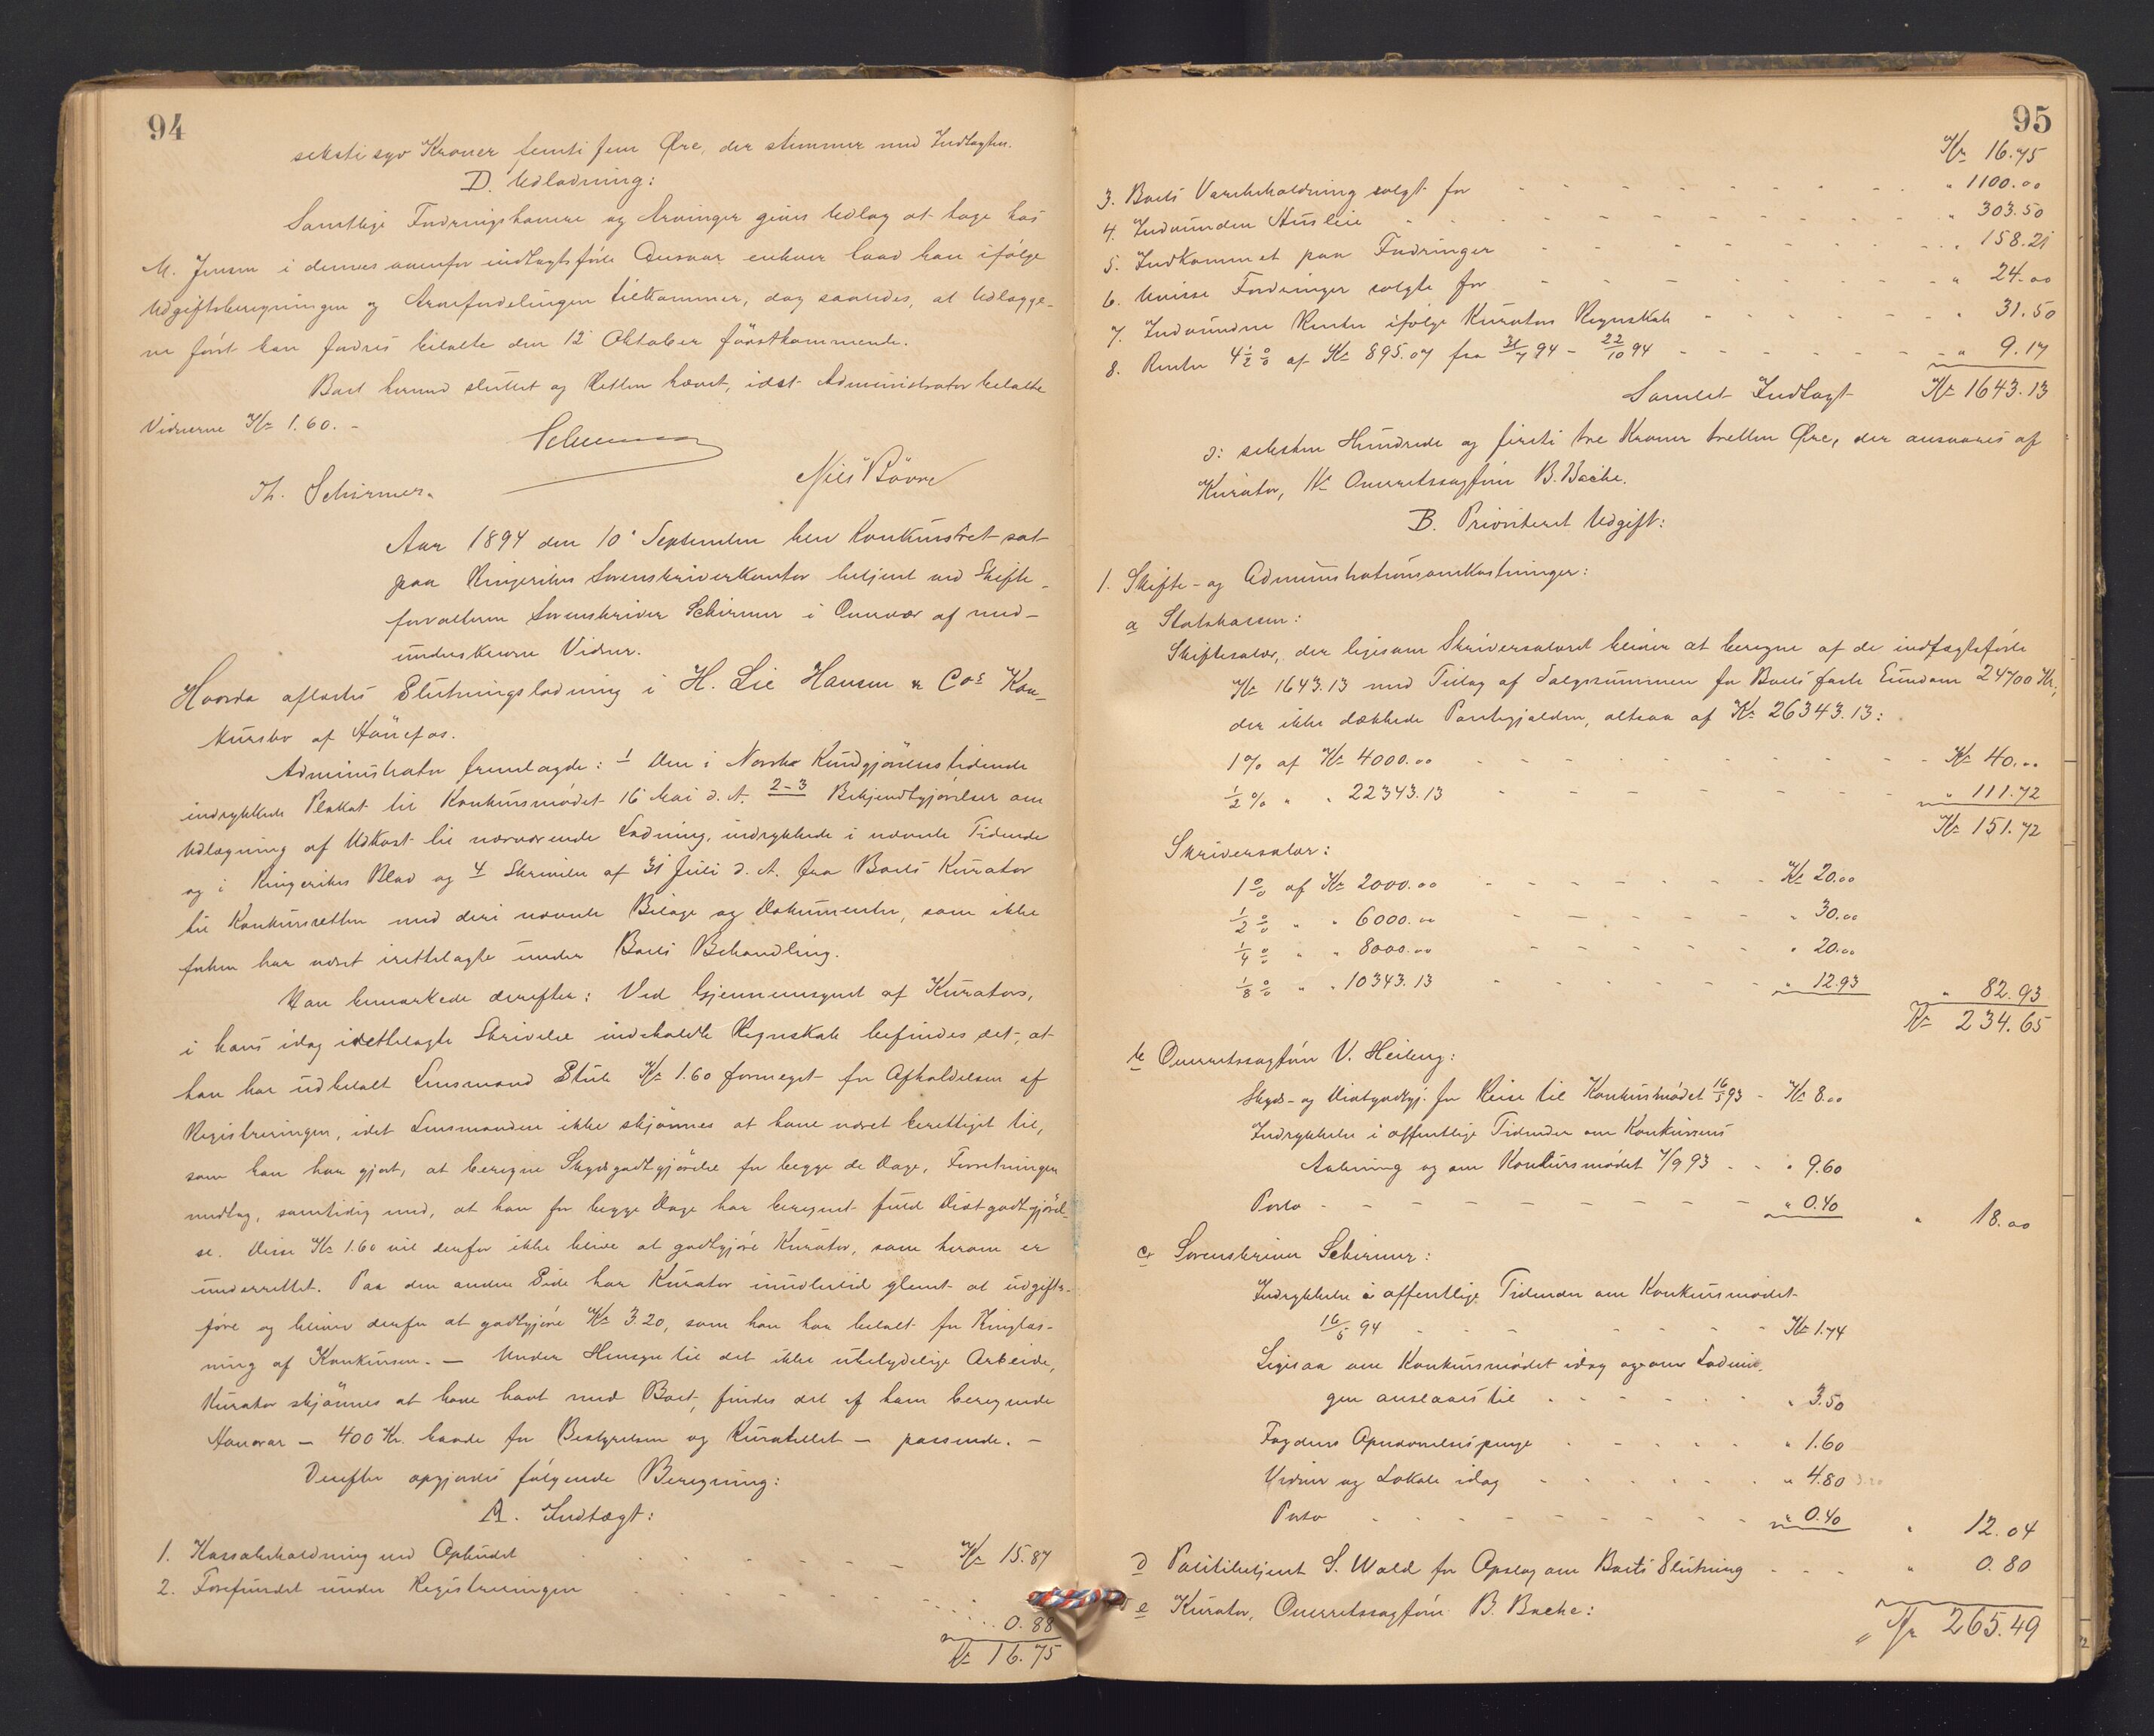 94
seksti syv Kroner femti fem Øre, der stemmer med Indtægten.
D. Udlodning:
Samtlige Fordringshavere og Arvinger gives Udlæg at tage hos
M. Jensen i dennes ovenfor indtægtsførte Ansvar enhver hvad han ifølge
Udgiftsberegningen og Arvefordelingen tilkommer, dog saaledes, at Udlægge-
ne først kan fordres betalte den 12 Oktober førstkommende.
Boet hermed sluttet og Retten hævet, idet Administrator betalte
Vidnerne Kr 1.60. -
Schirmer
Th. Schirmer. Nils Bövre
Aar 1894 den 10 September blev Konkursret sat
paa Ringerikes Sorenskriverkontor betjent ved Skifte-
forvalteren Sorenskriver Schirmer i Overvær af med-
underskrevne Vidner.
Hvorda afholdtes Slutningslodning i H. Lie Hansen & Cos Kon-
kursbo af Hönefos.
Administrator fremlagde: 1 Den i Norske Kundgjörelsestidende
indrykkede Plakat til Konkursmödet 16 Mai d. A. 2-3 Bekjendtgjörelser om
Udlægning af Udkast til nærværende Lodning, indrykkede i nævnte Tidende
og i Ringerikes Blad og 4 Skrivelse af 31 Juli d. A. fra Boets Kurator
til Konkursretten med deri nævnte Bilage og Dokumenter, som ikke
forhen har været irettelagte under Boets Behandling.
Man bemærkede derefter: Ved Gjennemsynet af Kurators,
i hans idag irettelagte Skrivelse indeholdte Regnskab befindes det, at
han har udbetalt Lensmand Stub Kr 1.60 formeget for Afholdelsen af
Registreringen, idet Lensmanden ikke skjönnes at have været berettiget til,
som han har gjort, at beregne Skydsgodtgjörelse for begge de Dage, Forretningen
medtog, samtidig med, at han for begge Dage har beregnet fuld Diætgodtgjörel-
se. Disse Kr 1.60 vil derfor ikke blive at godtgjöre Kurator, som herom er
underrettet. Paa den anden Side har Kurator imidlertid glemt at udgifts-
före og bliver derfor at godtgjöre Kr 3.20, som han har betalt for Thinglæs-
ning af Konkursen. — Under Hensyn til det ikke ubetydelige Arbeide,
Kurator skjönnes at have havt med Boet, findes det af ham beregnede
Honorar — 400 Kr. baade for Bestyrelsen og Kuratellet — passende. —
Derefter opgjordes følgende Beregning:
A. Indtægt:
1. Kassabeholdning ved Opbudet Kr 15.87
2. Forefundet under Registreringen 0.88
Kr 16.75
95
Kr 16.75
3. Boets Varebeholdning solgt for " 1100.00
4. Indvunden Husleie " 303.50
5. Indkommet paa Fordringer " 158.21
6. Uvisse Fordringer solgte for " 24.00
7. Indvundne Renter ifølge Kurators Regnskab " 31.50
8. Renter 4½ % af Kr 895.07 fra 31/7 94 - 22/10 94 " 9.17
Samlet Indtægt Kr 1643.13
ɔ: seksten Hundrede og firti tre Kroner tretten Øre, der ansvares af
Kurator, Hr Overretssagförer B. Bache.
B. Prioriteret Udgift:
1. Skifte- og Administrationsomkostninger:
a Statskassen:
Skiftesalær, der ligesom Skriversalæret bliver at beregne af de indtægtsförte
Kr 1643.13 med Tillæg af Salgssummen for Boets faste Eiendom 24700 Kr,
der ikke dækkede Pantegjælden, altsaa af Kr 26343.13:
1 % af Kr 4000.00 Kr 40.00
½ % " " 22343.13 " 111.72
Kr 151.72
Skriversalær:
1 % af Kr 2000.00 Kr 20.00
½ % " " 6000.00 " 30.00
¼ % " " 8000.00 " 20.00
⅛ % " " 10343.13 " 12.93 " 82.93
Kr 234.65
b Overretssagförer V. Heiberg:
Skyds- og Diætgodtgj. for Reise til Konkursmödet 16/5 93 - Kr 8.00
Indrykkelse i offentlige Tidender om Konkursens
Aabning og om Konkursmödet 7/9 93 " 9.60
Porto " 0.40 " 18.00
c Sorenskriver Schirmer:
Indrykkelse i offentlige Tidender om Konkursmödet
16/5 94 Kr 1.74
Ligesaa om Konkursmödet idag og om Lodnin-
gen anslaaes til " 3.50
Fogdens Opnævnelsespenge " 1.60
Vidner og Lokale idag " 4.80 3.20
Porto " 0.40 " 12.04
d Politibetjent S. Wold for Opslag om Boets Slutning " 0.80
e Kurator, Overretssagförer B. Bache:
Kr 265.49